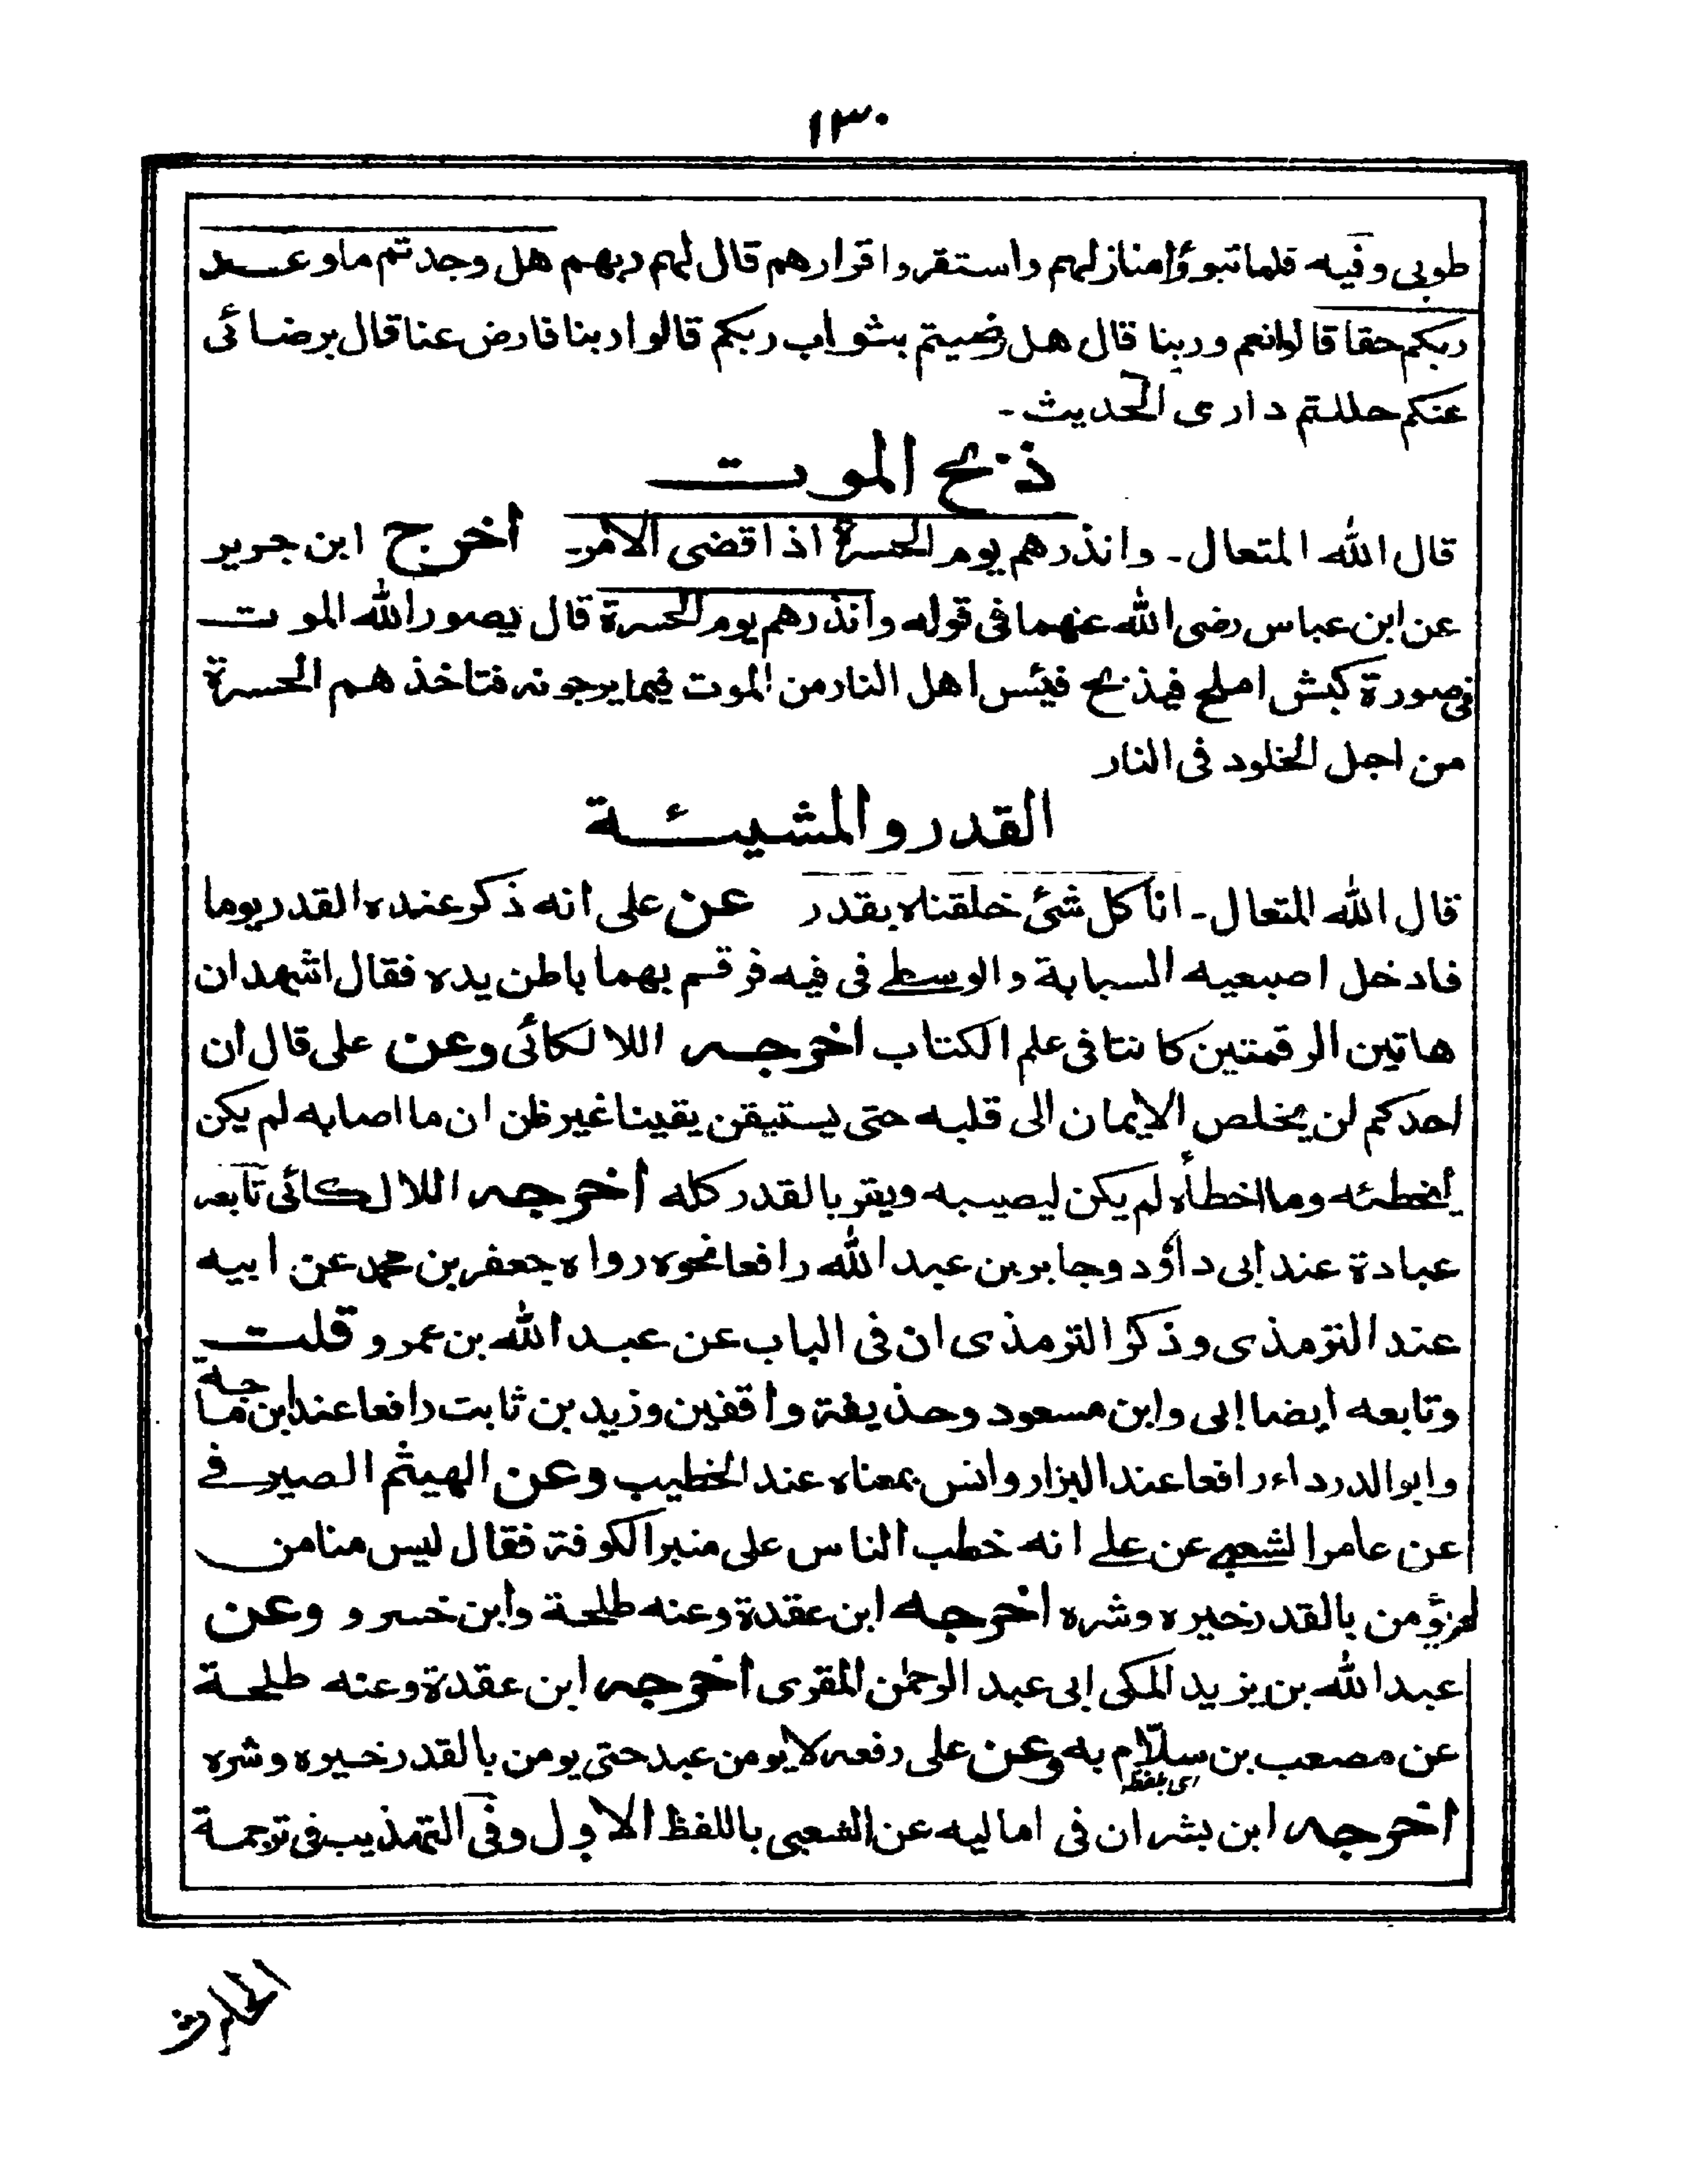 ١٣٠
طوبى وفيه فلما تبوؤا منازلهم واستقروا قرارهم قال لهم ربهم هل وجدتم ما وعد
ربكم حقا قالوا نعم وربنا قال هل رضيتم بثواب ربكم قالوا ربنا فارض عنا قال برضائى
عنكم حللتم دارى الحديث ـ
ذبح الموت
قال الله المتعال ـ وانذرهم يوم الحسرة اذا قضى الامر ـ اخرج ابن جرير
عن ابن عباس رضى الله عنهما فى قوله وانذرهم يوم الحسرة قال يصور الله الموت
فى صورة كبش املح فيذبح فيئس اهل النار من الموت فيما يرجونه فتاخذ هم الحسرة
من اجل الخلود فى النار
القدر والمشيئة
قال الله المتعال ـ انا كل شئ خلقناه بقدر عن على انه ذكر عنده القدر يوما
فادخل اصبعيه السبابة والوسطے فى فيه فرقم بهما باطن يده فقال اشهد ان
هاتين الرقمتين كانتا فى علم الكتاب اخرجه اللالكائى وعن على قال ان
احدكم لن يخلص الايمان الى قلبه حتى يستيقن يقينا غير ظن ان ما اصابه لم يكن
ليخطئه وما اخطأه لم يكن ليصيبه ويقر بالقدر كله اخرجه اللالكائى تابعه
عبادة عند ابى داؤد وجابر بن عبد الله رافعا نحوه رواه جعفر بن محمد عن ابيه
عند الترمذى وذكر الترمذى ان فى الباب عن عبد الله بن عمرو قلت
وتابعه ايضا ابى وابن مسعود وحذيفة واقفين وزيد بن ثابت رافعا عند ابن ماجة
وابو الدرداء رافعا عند البزار وانس بمعناه عند الخطيب وعن الهيثم الصيرفے
عن عامر الشعبے عن علے انه خطب الناس على منبر الكوفة فقال ليس منا من
لم يؤمن بالقدر خيره وشره اخرجه ابن عقدة وعنه طلحة وابن خسرو وعن
عبد الله بن يزيد المكى ابى عبد الرحمن المقرى اخرجه ابن عقدة وعنه طلحة
عن مصعب بن سلّام به وعن على رفعه لا يومن عبد حتى يومن بالقدر خيره وشره
اى بلفظه
اخرجه ابن بشران فى اماليه عن الشعبى باللفظ الاول وفى التهذيب فى ترجمة